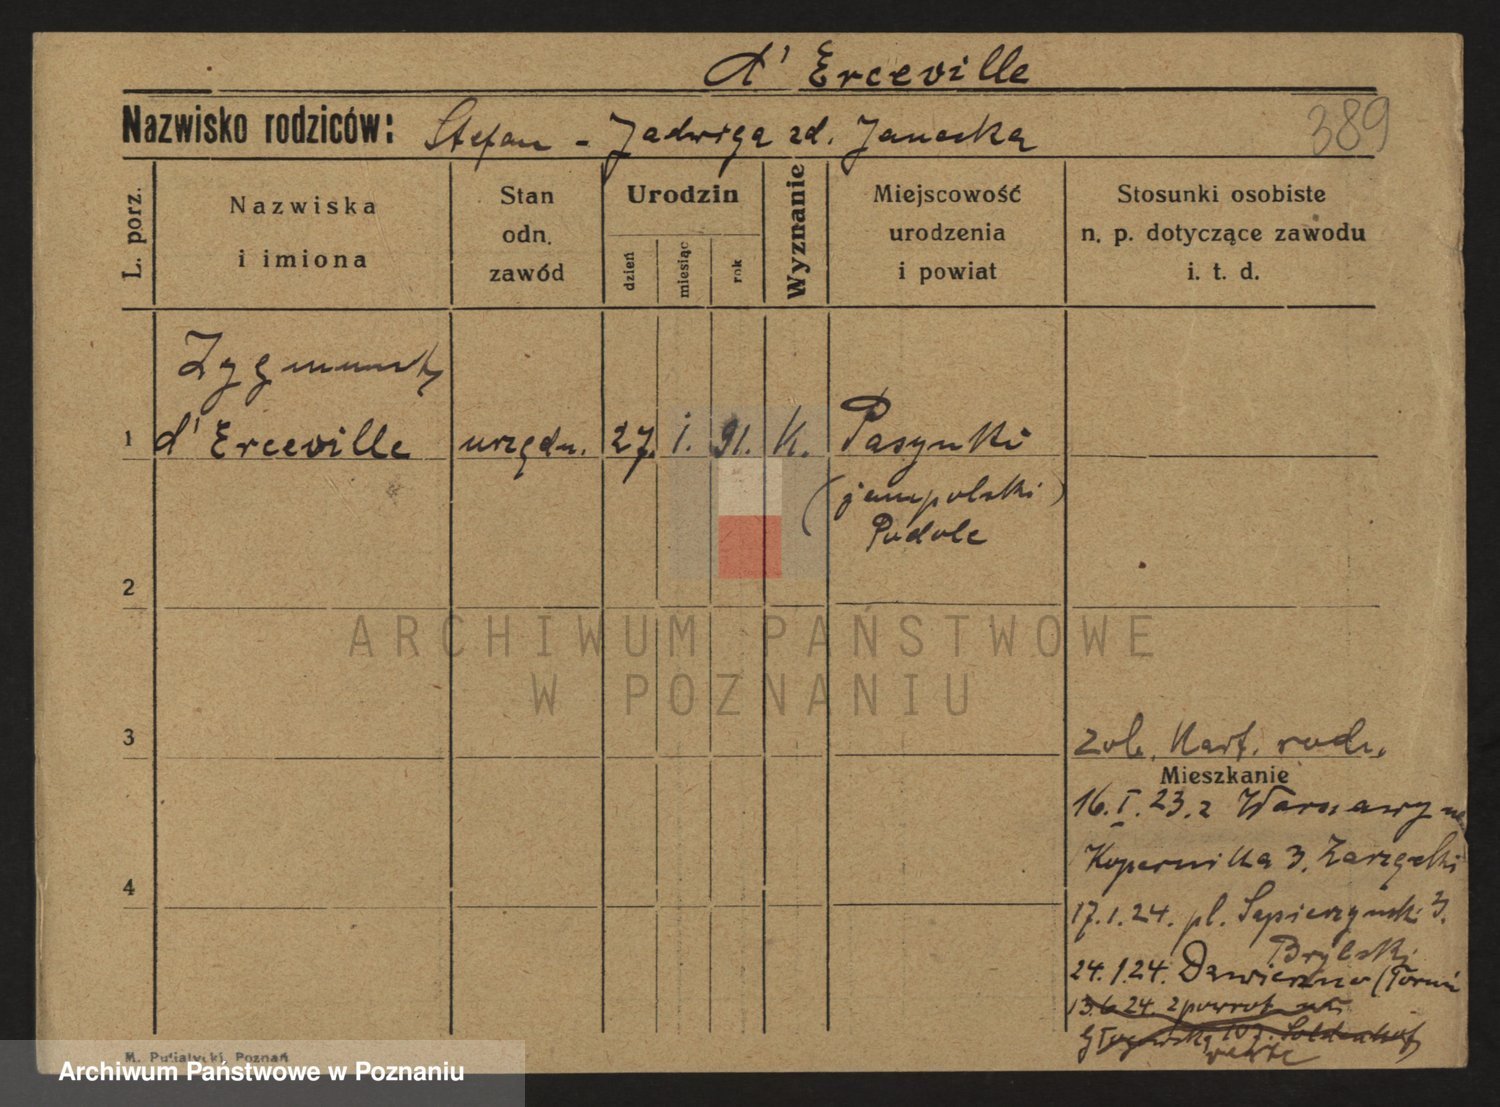 d' Erceville
Nazwisko rodziców: Stefan - Jadwiga zd. Janecka
389
L. porz.
Nazwiska
i imiona
Stan
odn.
zawód
Urodzin
dzień
miesiąc
rok
Wyznanie
Miejscowość
urodzenia
i powiat
Stosunki osobiste
n. p. dotyczące zawodu
i. t. d.
Zygmunt
1 d' Erceville urzędn. 27. I. 91. K. Pasynki
(jampolski)
Podole
2
ARCHIWUM PAŃSTWOWE
W POZNANIU
3
zob. Kart. rodz.
Mieszkanie
16. I. 23. z Warszawy na
Kopernika 3.
4
17.1.24. pl. Sapieżyński 3.
Brylski
24.1.24.
13.6.24. z powrot. na
M. Putiatycki, Poznań
Archiwum Państwowe w Poznaniu